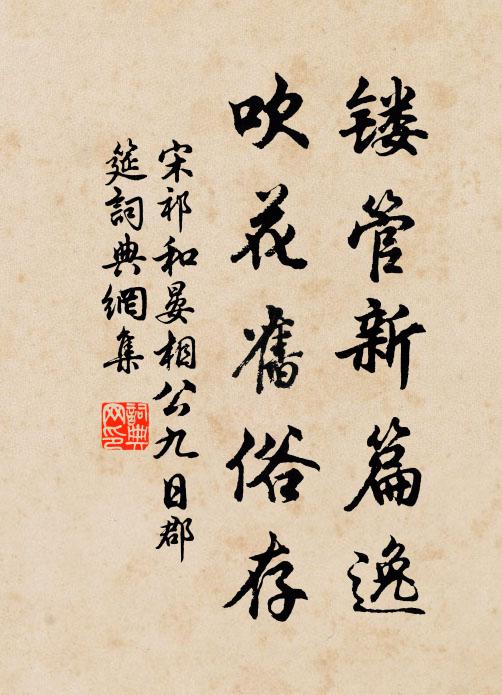 镂管新篇逸
吹花舊俗存
宋祁和晏相公九日郡
筵詞典網集
詞典
网印